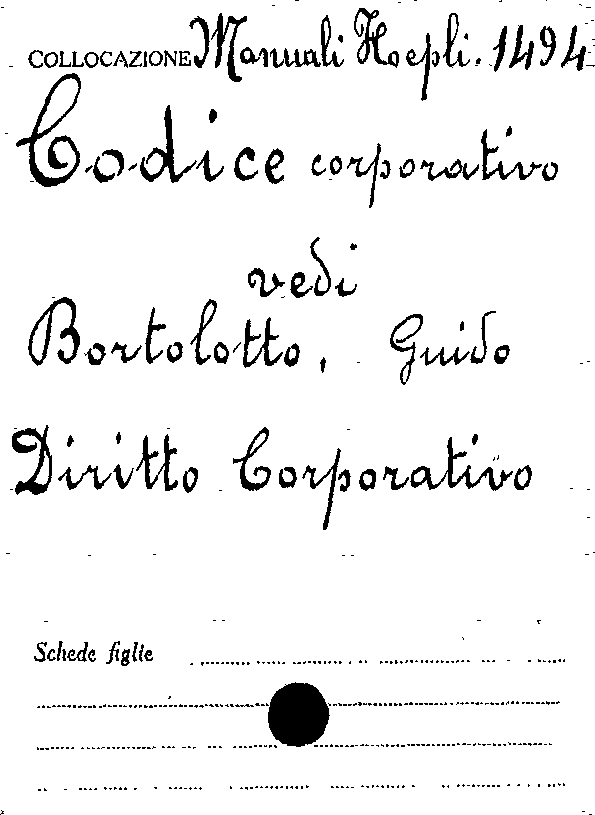 COLLOCAZIONE Manuali Hoepli. 1494
Codice corporativo
vedi
Bortolotto, Guido
Diritto Corporativo
Schede figlie